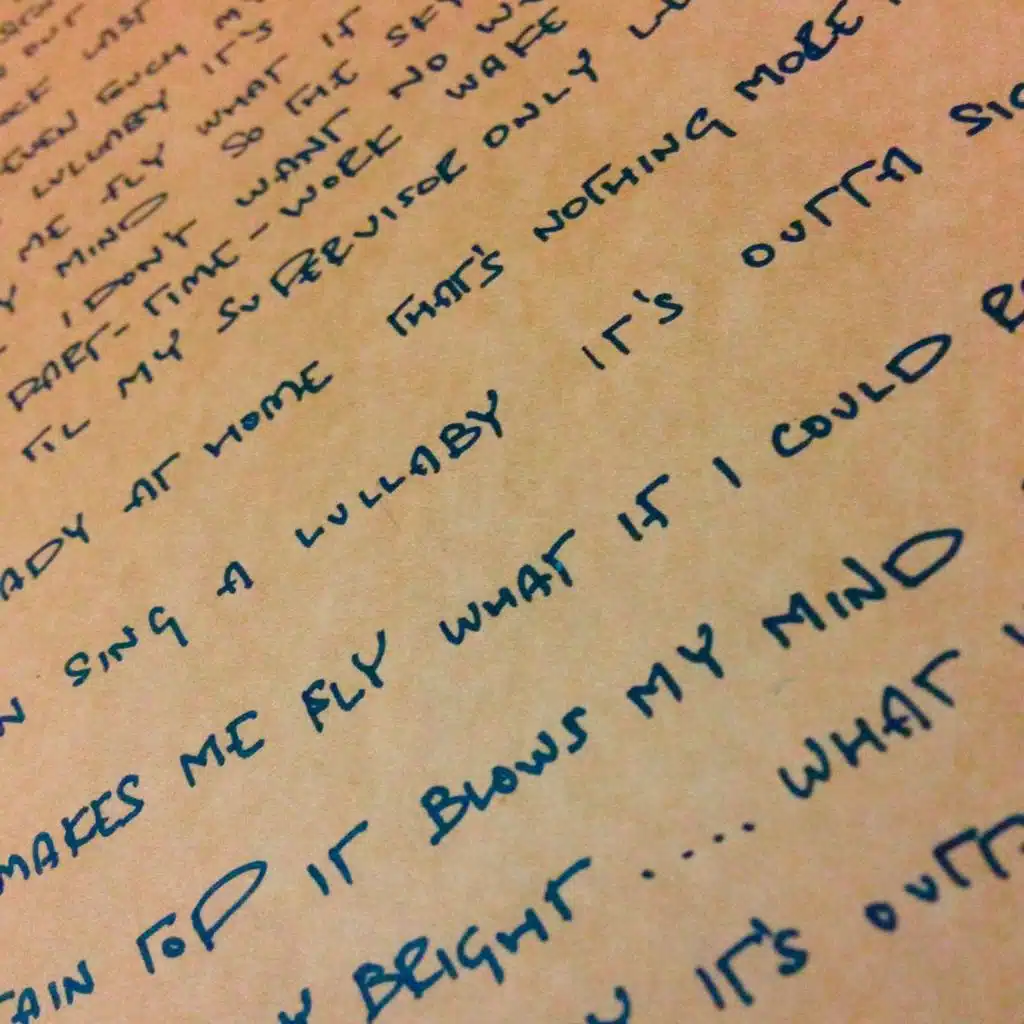 OUT
LAST
EVEN SUCH
LULLABY IT'S
ME FLY WHAT IF
MIND SO THE SKY
I DONT WANT NO
PART-TIME-WORK WAKE
TIL MY SUPERVISOR ONLY
ADY AT HOME THAT'S NOTHING MORE
SING A LULLABY IT'S OUTTA SIG
MAKES ME FLY WHAT IF I COULD
TAIN TOP IT BLOWS MY MIND
BRIGHT .... WHAT
IT'S OUTTA